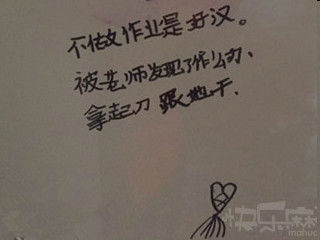 不做作业是好汉。
被老师发现了作么办、
拿起刀跟她干.
快乐麻
mahuc